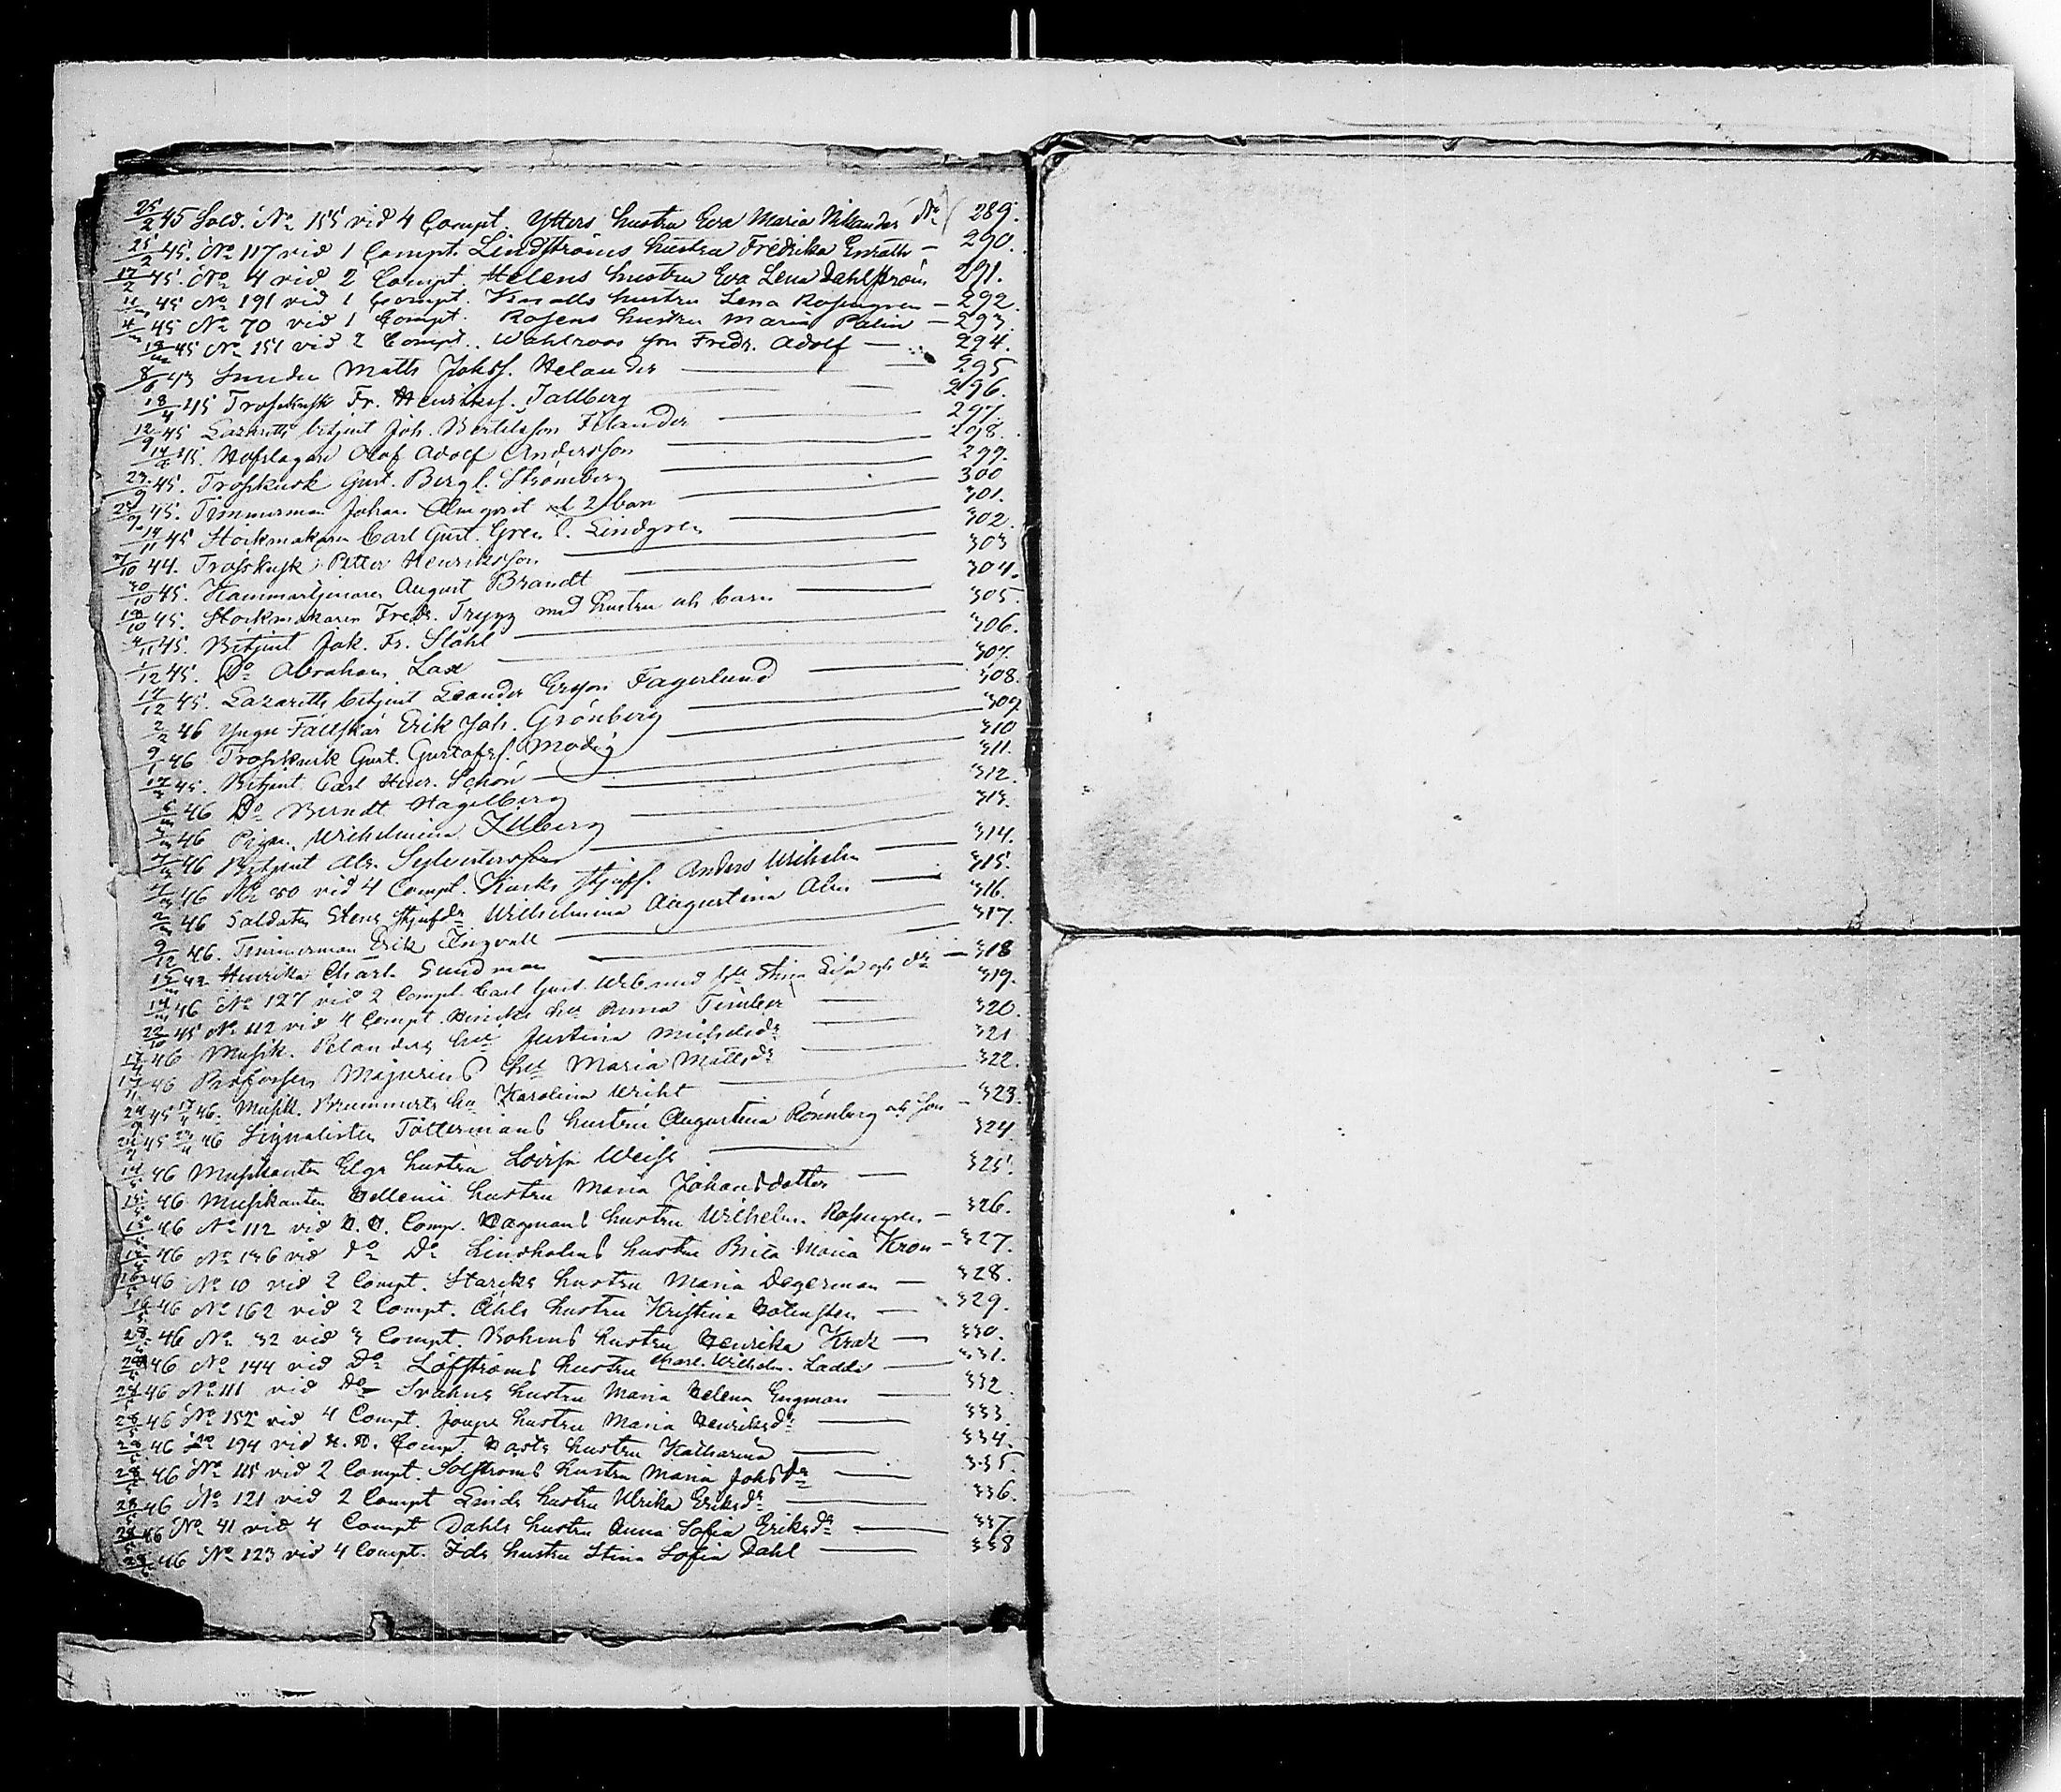 25/2 45 Sold. No 155 vid 4 Compt. Ytters hustru Eva Maria Nikander No 289.
25/2 45. No 117 vid 1 Compt. Lindströms hustru Fredrika Enrøth – 290.
17/2 45. No 4 vid 2 Compt. Helens hustru Eva Lena Dahlström 291.
45 No 191 vid 1 Compt. Knalls hustru Lena Rosengren – 292.
45 No 70 vid 1 Compt. Rosens hustru Maria Palin – 293.
45 No 151 vid 2 Compt. Wahlroos son Fredr. Adolf – 294.
8/6 43 Smeden Matts Johss. Helander 295
18/4 45 Trosskusk Fr. Henrikss. Tallberg 296.
12/9 45 Lazaretts betjent Joh. Bertilsson Filander 297.
45. Hofslagare Olof Adolf Andersson 298.
23/9 45. Trosskusk Gust. Bergl. Strömberg 299.
45. Timmerman Johan Almqvist och 2 barn 300
14/11 45 Stockmakaren Carl Gust. Gren l. Lindgren 301.
7/10 44. Trosskusk Petter Henriksson 302.
30/10 45. Kammartjenaren August Brandt 303
18/10 45. Stockmakaren Fredr. Trygg med hustru och barn 304.
4/11 45. Betjent Jak. Fr. Ståhl 305.
1/12 45. Do Abraham Lax 306.
17/12 45. Lazaretts betjent Leander Ersson Fagerlund 307.
2/2 46 Yngre Fältskär Erik Joh. Grönberg 308.
9/1 46 Trosskusk Gust. Gustafss. Modig 309
45. Betjent Carl Henr. Schön 310
46 Do Berndt Hagelberg 311.
46 Pigan Wilhelmina Illberg 312.
46 Betjent Alx. Sylvestersson 313.
46 No 80 vid 4 Compt. Kurks styfs. Anders Wilhelm 314.
46 Soldaten Stens styfdr Wilhelmina Augustina Alm 315.
9/12 46. Timmerman Erik Engvall 316.
42 Henrika Charl. Sundman 317.
46 No 127 vid 2 Compt. Carl Gust. med Stina Lisa och dr – 318
22/10 45 No 112 vid 4 Compt. hu Anna Timber 319.
17/4 46 Musik. Velanders hu Justina Michelsdr 320.
46 Profossen Majurins hu Maria Mattsdr 321
45 17/4 46. Musik. Brummerts hu Karolina Wriht 322.
45 46 Signalisten Töttermans hustru Augustina Rönnberg och son – 323.
46 Musikanten Elgs hustru Lovisa Weiss 324
46 Musikanten Hellenii hustru Maria Johansdotter 325.
46 No 112 vid H. A. Comp. Hagmans hustru Wilhelm. Rosengren – 326.
46 No 136 vid do Do Lindholms hustru Brita Maria Kron – 327.
16/5 46 No 10 vid 2 Compt. Starcks hustru Maria Degerman – 328.
46 No 162 vid 2 Compt. Åhls hustru Kristina 329.
46 No 32 vid 3 Compt. Bohms hustru Henrika Krok – 330.
46 No 144 vid Do Löfströms hustru Charl. Wilhelm. Ladde – 331.
46 No 111 vid Do Svahns hustru Maria Helena Engman – 332.
28/5 46 No 152 vid 4 Compt. hustru Maria Henriksdr – 333.
46 No 194 vid H. A. Compt. hustru Katharina – 334.
28/5 46 No 115 vid 2 Compt. Solströms hustru Maria Johsdr – 335.
28/5 46 No 121 vid 2 Compt Linds hustru Ulrika Eriksdr 336.
28/5 46 No 41 vid 4 Compt Dahls hustru Anna Sofia Eriksdr 337
46 No 123 vid 4 Compt. Ids hustru Stina Sofia Dahl 338